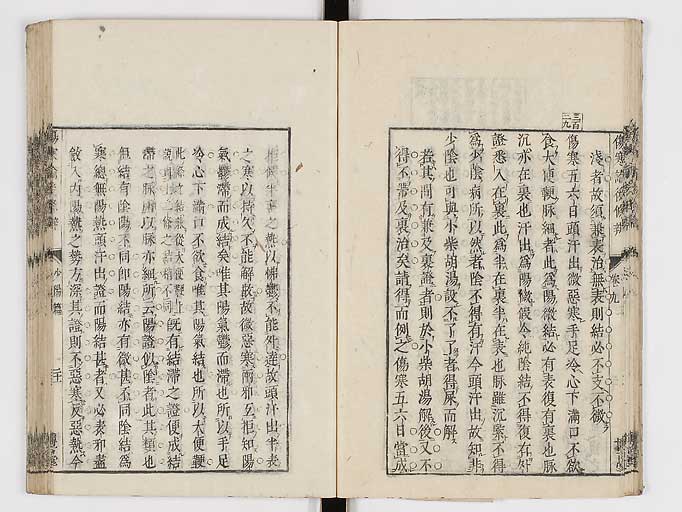 淺者故須兼表治無表則結必不支不微
三百九
傷寒五六日頭汗出微惡寒手足冷心下滿口不欲
食大便鞕脈細者此爲陽微結必有表復有裏也脈
沉亦在裏也汗出爲陽微假令純陰結不得復有外
證悉入在裏此爲半在裏半在外也脈雖沉緊不得
爲少陰病所以然者陰不得有汗今頭汗出故知非
少陰也可與小柴胡湯設不了了者得屎而解
其間有兼及裏證者則於小柴胡湯解後又不
得不帶及裏治矣諸得而例之傷寒五六日當成
半表之熱以怫鬱不能外達故頭汗出半表
之寒以持久不能解散故微惡寒兩邪互拒知陽
氣鬱滯而成結矣唯其陽氣鬱而滯也所以手足
冷心下滿口不欲食唯其陽氣結也所以大便鞕
既有結滯之證便成結
滯之脈所以脈亦細所云陽證似陰者此其類也
但結有陰陽不同即陽結亦有微甚不同陰結爲
寒總無陽熱頭汗出證而陽結甚者又必表邪盡
斂入內陽熱之勢方深其證則不惡寒反惡熱今
卷九
少陽篇